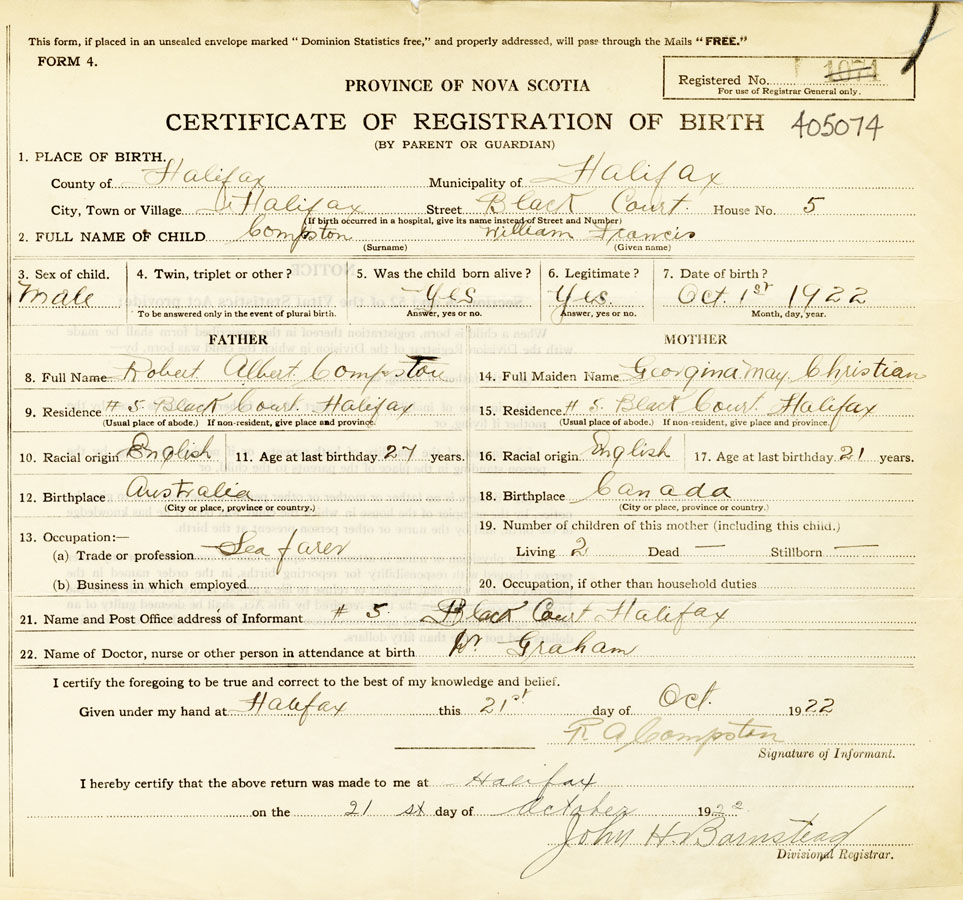 This form, if placed in an unsealed envelope marked "Dominion Statistics free," and properly addressed, will pass through the Mails "FREE."
FORM 4.
Registered No. 1071
For use of Registrar General only.
PROVINCE OF NOVA SCOTIA
CERTIFICATE OF REGISTRATION OF BIRTH 405074
(BY PARENT OR GUARDIAN)
1. PLACE OF BIRTH.
County of Halifax Municipality of Halifax
City, Town or Village Halifax Street Black Court. House No. 5
(If birth occurred in a hospital, give its name instead of Street and Number)
2. FULL NAME OF CHILD Compston William Francis
(Surname) (Given name)
3. Sex of child. 4. Twin, triplet or other? 5. Was the child born alive? 6. Legitimate? 7. Date of birth?
Male Yes Yes. Oct. 1st 1922
To be answered only in the event of plural birth. Answer, yes or no. Answer, yes or no. Month, day, year.
FATHER MOTHER
8. Full Name Robert Albert Compston 14. Full Maiden Name Georgina May Christian
9. Residence # 5 Black Court. Halifax 15. Residence # 5. Black Court. Halifax
(Usual place of abode.) If non-resident, give place and province. (Usual place of abode.) If non-resident, give place and province.
10. Racial origin English 11. Age at last birthday 27 years. 16. Racial origin English 17. Age at last birthday 21 years.
12. Birthplace Australia 18. Birthplace Canada
(City or place, province or country.) (City or place, province or country.)
13. Occupation:— 19. Number of children of this mother (including this child.)
(a) Trade or profession Sea farer Living 2 Dead — Stillborn —
(b) Business in which employed 20. Occupation, if other than household duties
21. Name and Post Office address of Informant # 5. Black Court Halifax
22. Name of Doctor, nurse or other person in attendance at birth Dr. Graham
I certify the foregoing to be true and correct to the best of my knowledge and belief.
Given under my hand at Halifax this 21st day of Oct. 1922
R A Compston
Signature of Informant.
I hereby certify that the above return was made to me at Halifax
on the 21 st day of October 1922
John H. Barnstead
Divisional Registrar.